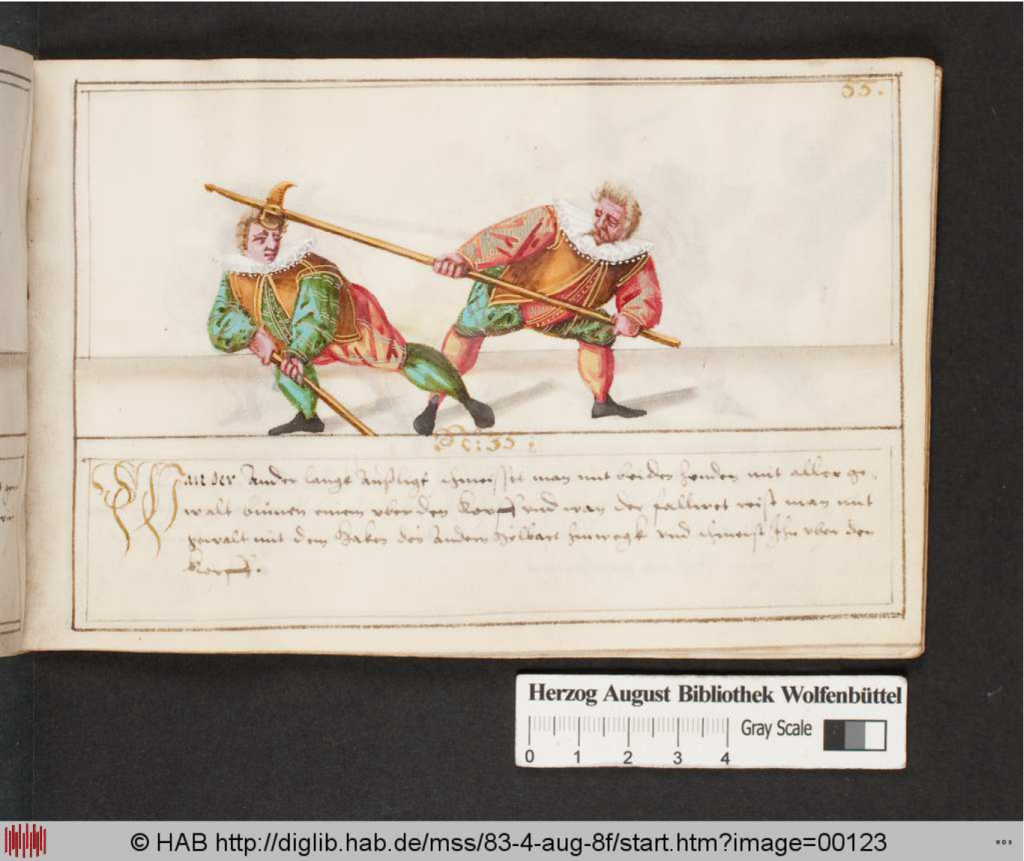 55.
N: 55.
Wan der Ander langt Außligt schmeisset man mit beiden henden mit aller ge-
walt einem vber den Kopff vnd wan der falliret reist man mit
gewalt mit dem Haken des Andern Helbart hinwegk vnd schmeist Ihn vber den
Kopff.
Herzog August Bibliothek Wolfenbüttel
Gray Scale
0 1 2 3 4
© HAB http://diglib.hab.de/mss/83-4-aug-8f/start.htm?image=00123